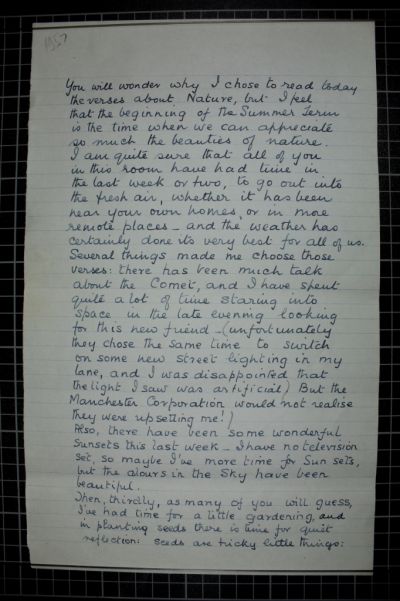 1957
You will wonder why I chose to read today
the verses about Nature, but I feel
that the beginning of the Summer Term
is the time when we can appreciate
so much the beauties of nature.
I am quite sure that all of you
in this room have had time in
the last week or two, to go out into
the fresh air, whether it has been
near your own homes, or in more
remote places – and the weather has
certainly done its very best for all of us.
Several things made me choose those
verses: there has been much talk
about the Comet, and I have spent
quite a lot of time staring into
space in the late evening looking
for this new friend – (unfortunately
they chose the same time to switch
on some new street lighting in my
lane, and I was disappointed that
the light I saw was artificial) But the
Manchester Corporation would not realise
they were upsetting me!)
Also, there have been some wonderful
Sunsets this last week – I have no television
set, so maybe I've more time for Sun sets,
but the colours in the Sky have been
beautiful.
Then, thirdly, as many of you will guess,
I've had time for a little gardening, and
in planting seeds there is time for quiet
reflection: seeds are tricky little things: